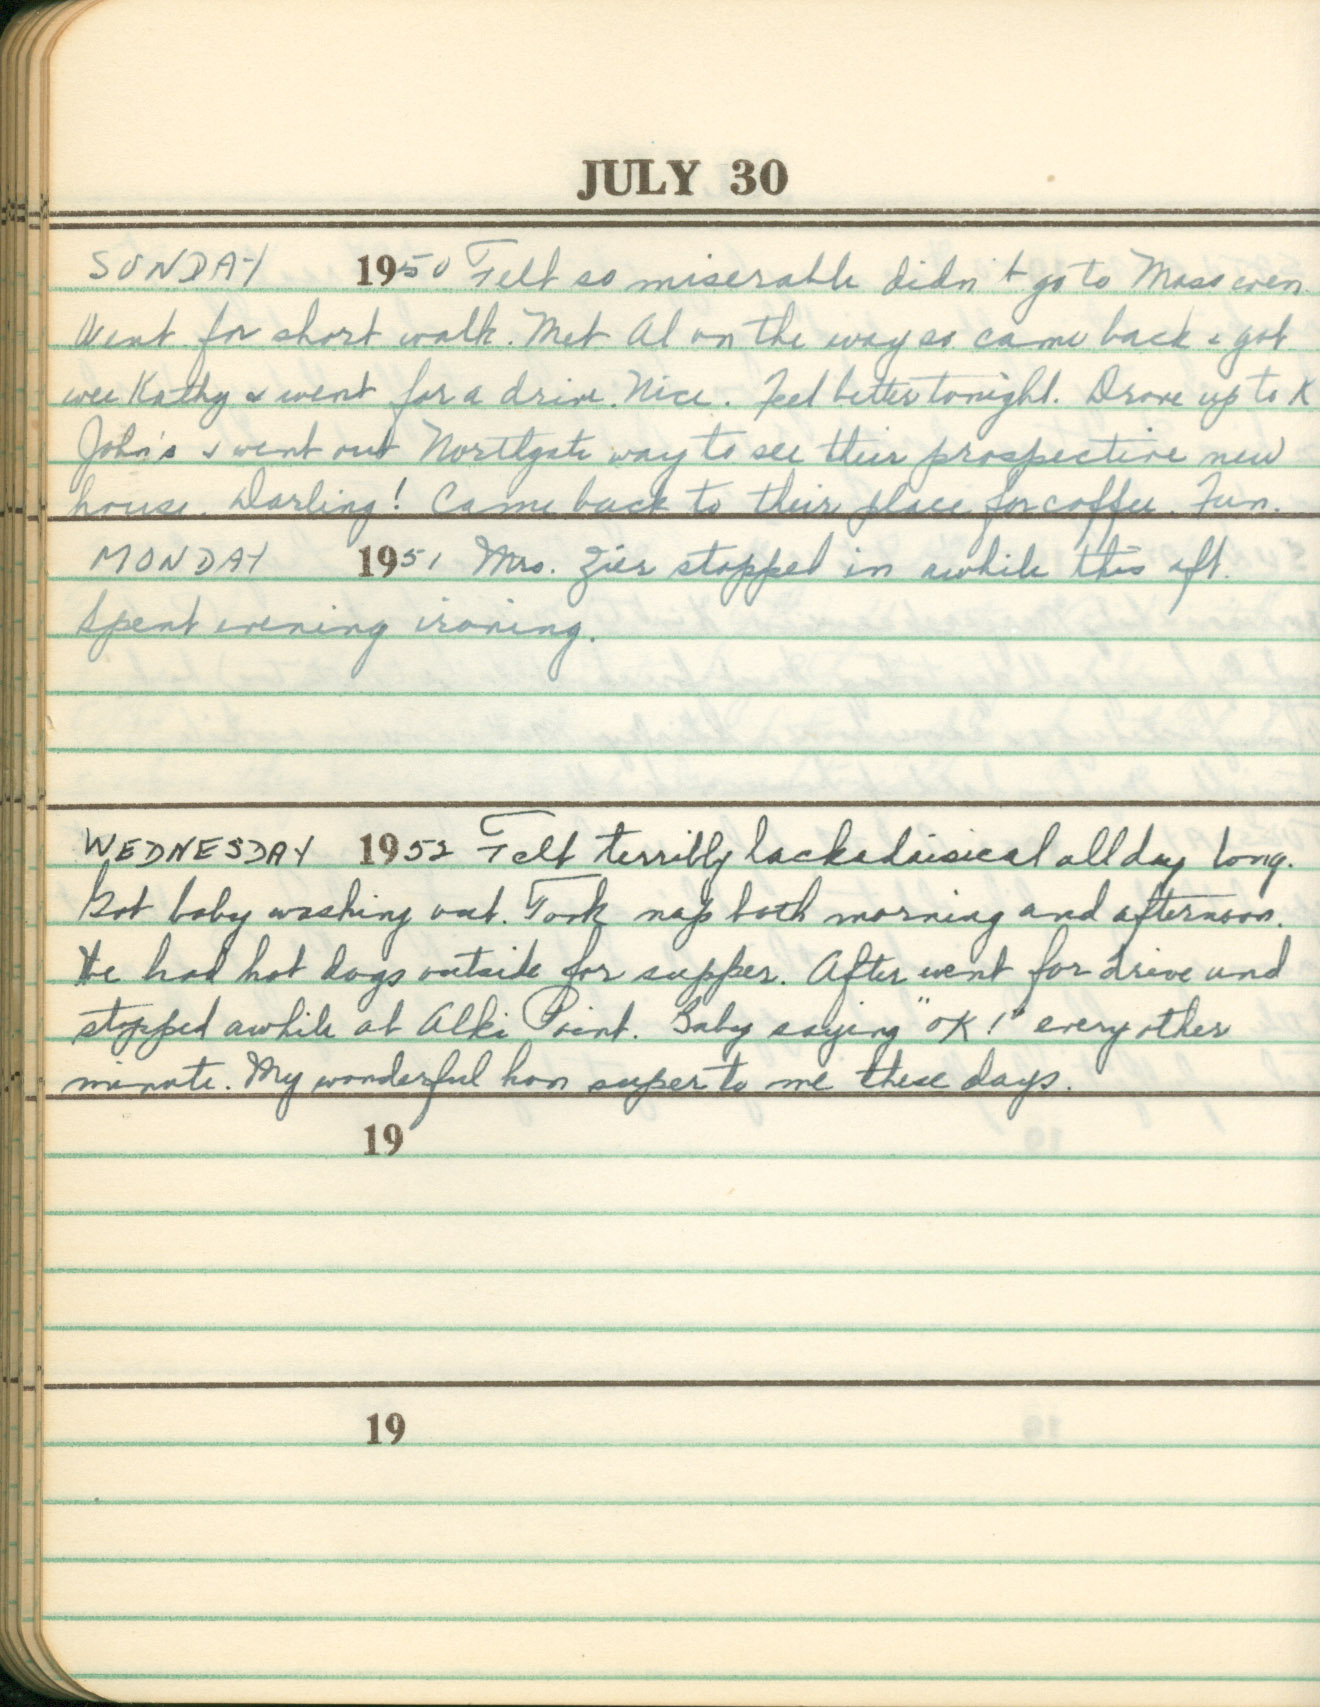 JULY 30
SUNDAY 1950 Felt so miserable didn't go to Mass even.
Went for short walk. Met Al on the way so came back & got
wee Kathy & went for a drive. Nice. Feel better tonight. Drove up to K
John's & went out Northgate way to see their prospective new
house. Darling! Came back to their place for coffee. Fun.
MONDAY 1951 Mrs. Zier stopped in awhile this aft.
Spent evening ironing.
WEDNESDAY 1952 Felt terribly lackadaisical all day long.
Got baby washing out. Took nap both morning and afternoon.
We had hot dogs outside for supper. After went for drive and
stopped awhile at Alki Point. Baby saying "OK!" every other
minute. My wonderful hon super to me these days.
19
19